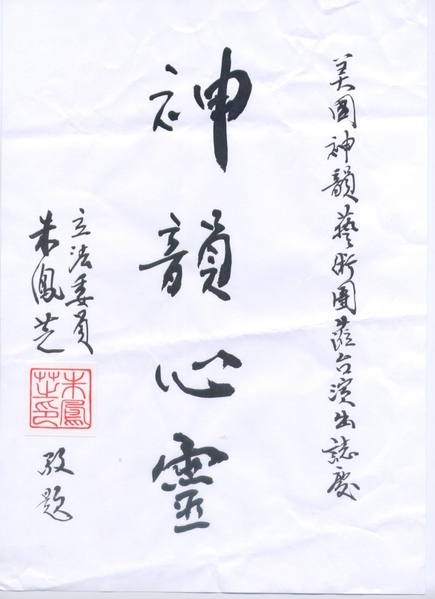 美國神韻藝術團蒞台演出誌慶
神韻心靈
立法委員
朱鳳芝
朱鳳
芝印
敬題